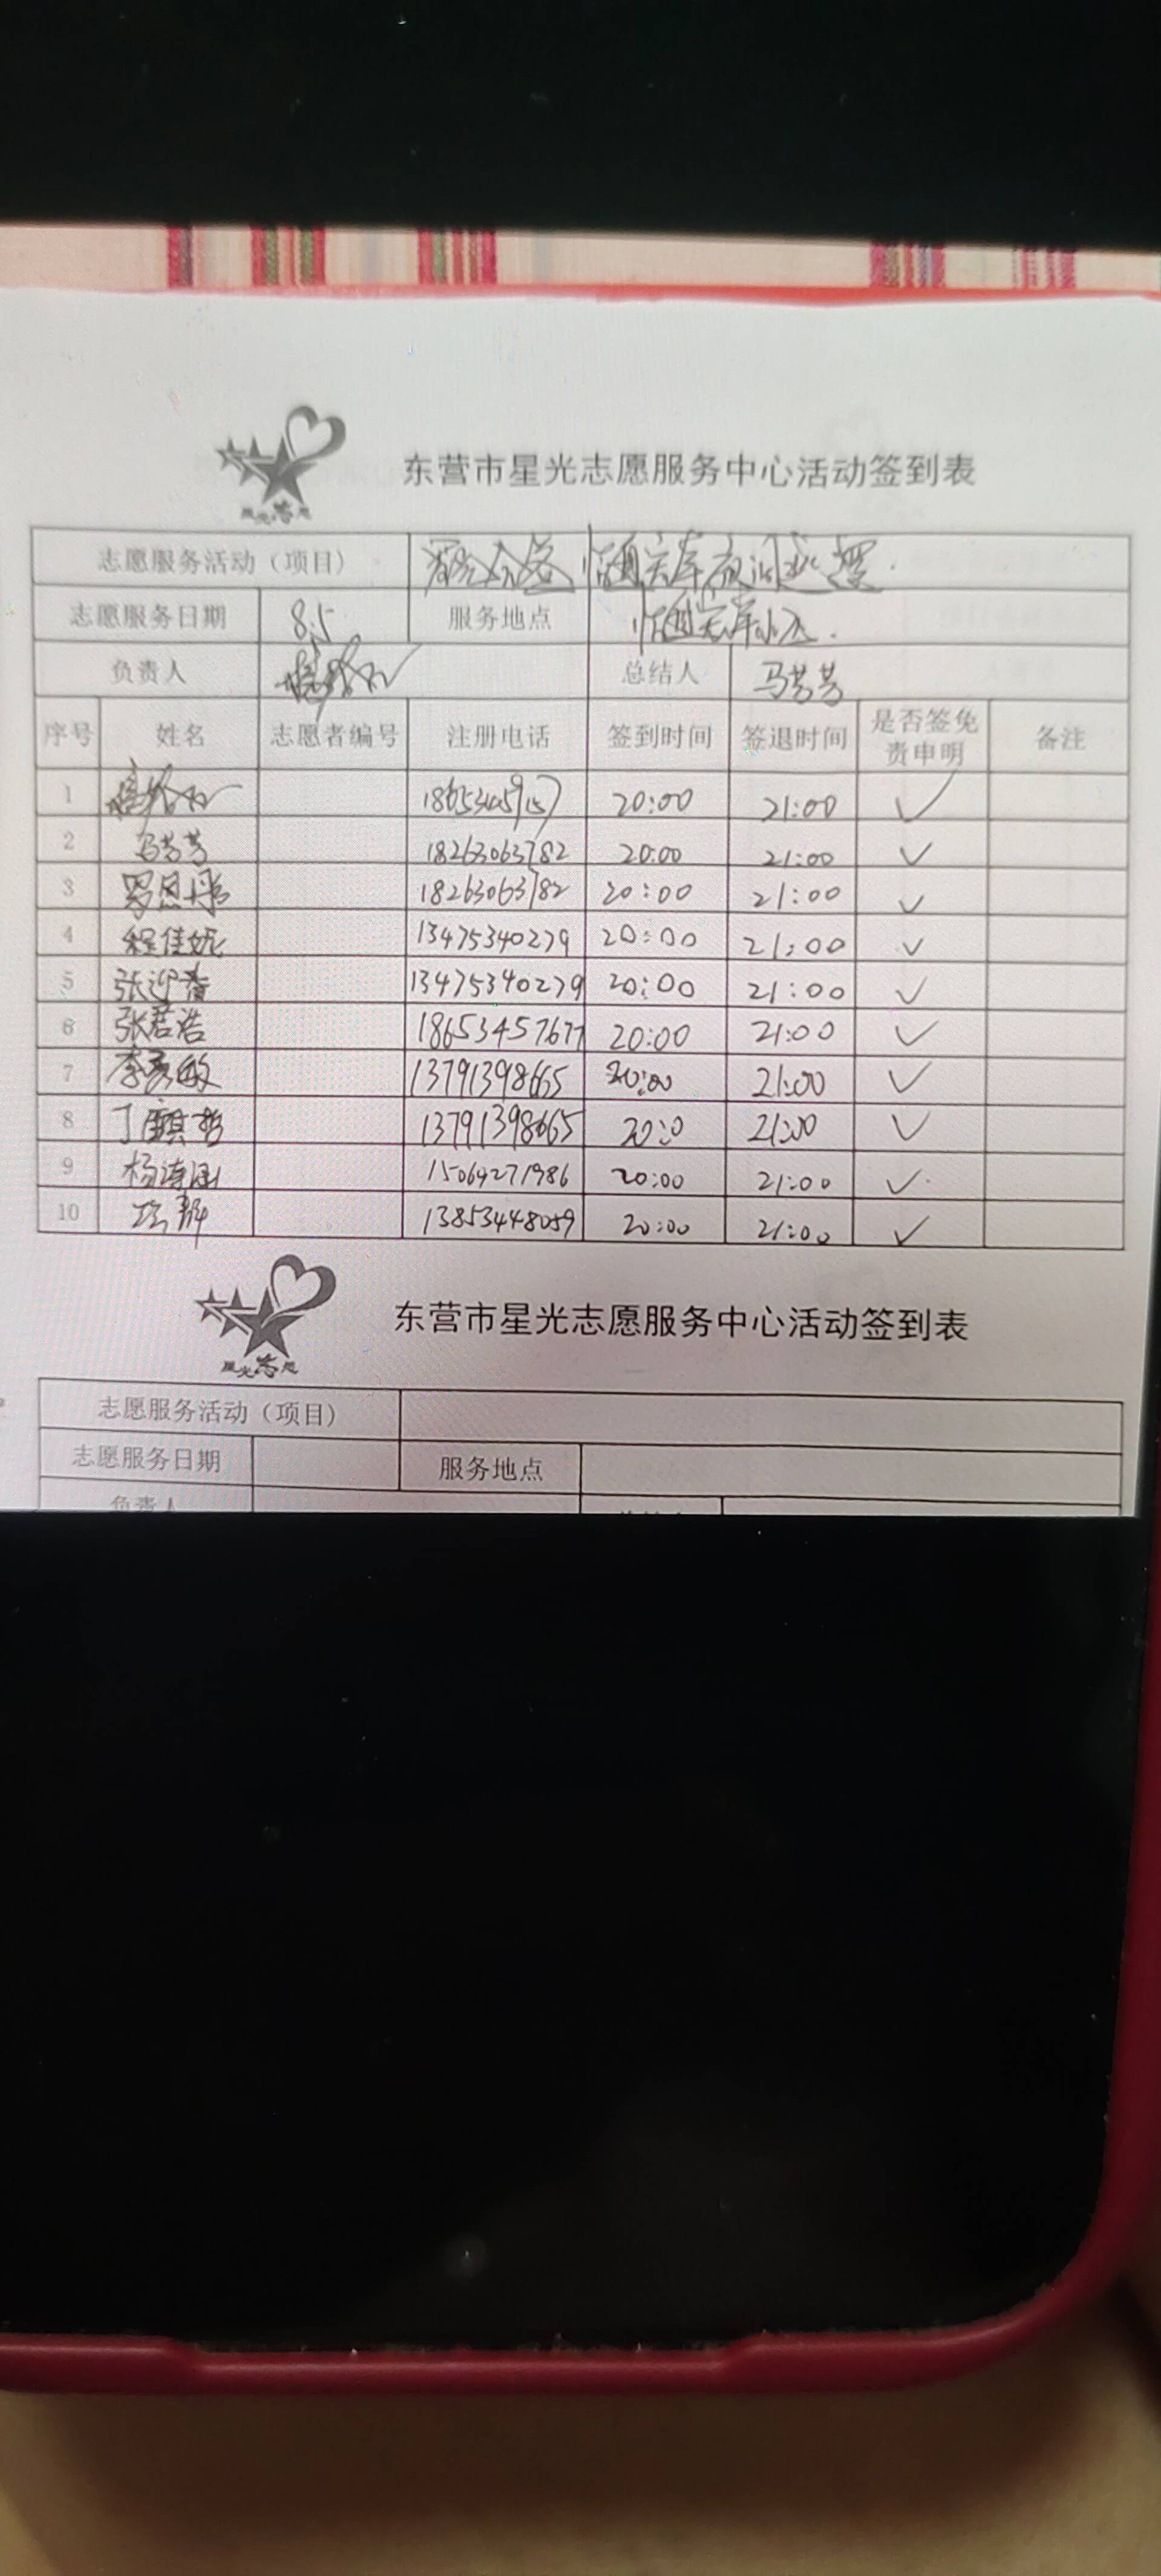 星光志愿
东营市星光志愿服务中心活动签到表
志愿服务活动（项目）
志愿服务日期 8.5 服务地点
负责人 总结人 马芳芳
序号 姓名 志愿者编号 注册电话 签到时间 签退时间 是否签免责申明 备注
1 20:00 21:00 ✓
2 马芳芳 18263063782 20:00 21:00 ✓
3 罗恩彤 18263063782 20:00 21:00 ✓
4 程佳妮 13475340279 20:00 21:00 ✓
5 张迎春 13475340279 20:00 21:00 ✓
6 张君浩 18653457677 20:00 21:00 ✓
7 13791398665 20:00 21:00 ✓
8 13791398665 20:0 21:00 ✓
9 15064271986 20:00 21:00 ✓
10 13853448059 20:00 21:00 ✓
星光志愿
东营市星光志愿服务中心活动签到表
志愿服务活动（项目）
志愿服务日期 服务地点
负责人